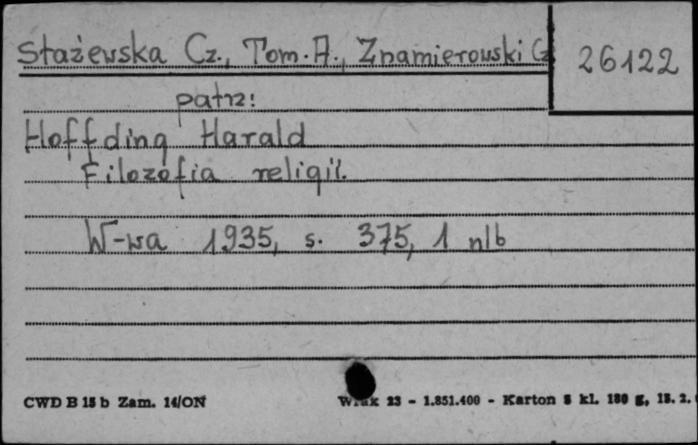 Stażewska Cz., Tom. A., Znamierowski Cz
26122
patrz:
Hoffding Harald
Filozofia religii.
W-wa 1935, s. 375, 1 nlb
CWD B 15 b Zam. 14/ON
23 - 1.851.400 - Karton kl. 180 g, 15. 2.